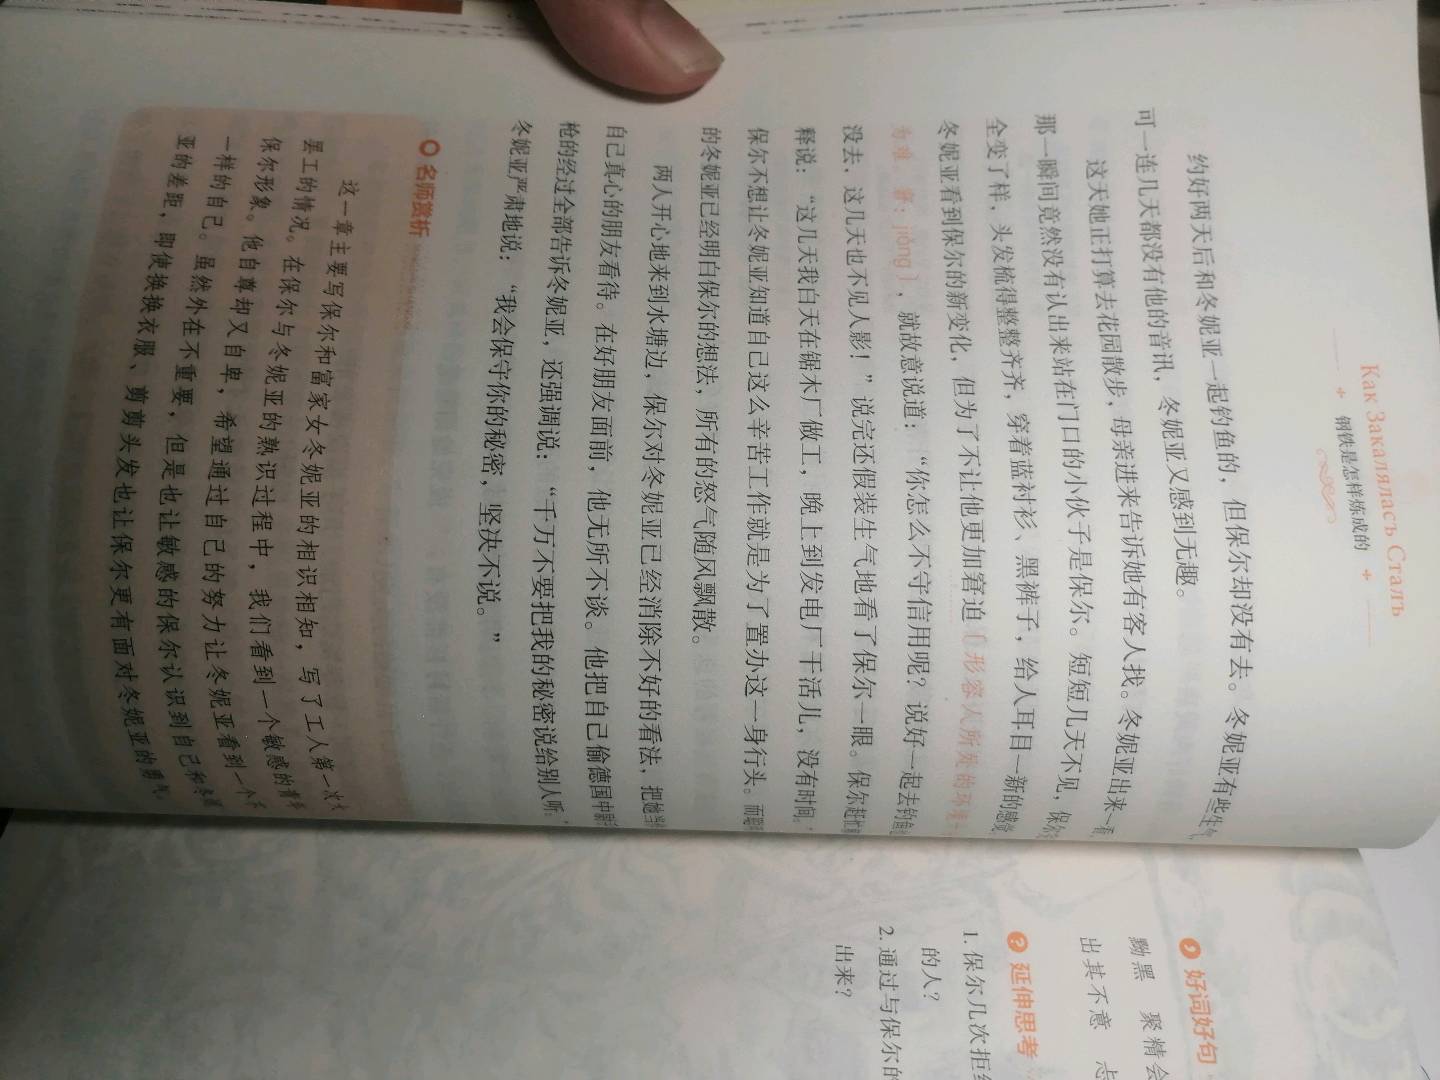 Как Закалялась Сталь
钢铁是怎样炼成的
约好两天后和冬妮亚一起钓鱼的，但保尔却没有去。冬妮亚有些生气，
可一连几天都没有他的音讯，冬妮亚又感到无趣。
这天她正打算去花园散步，母亲进来告诉她有客人找。冬妮亚出来一看，
那一瞬间竟然没有认出来站在门口的小伙子是保尔。短短几天不见，保尔
全变了样，头发梳得整整齐齐，穿着蓝衬衫、黑裤子，给人耳目一新的感觉。
冬妮亚看到保尔的新变化，但为了不让他更加窘迫［形容人所处的环境十
为难。窘：jiǒng］，就故意说道：“你怎么不守信用呢？说好一起去钓鱼
没去，这几天也不见人影！”说完还假装生气地看了保尔一眼。保尔赶忙解
释说：“这几天我白天在锯木厂做工，晚上到发电厂干活儿，没有时间。”
保尔不想让冬妮亚知道自己这么辛苦工作就是为了置办这一身行头。而聪
的冬妮亚已经明白保尔的想法，所有的怒气随风飘散。
两人开心地来到水塘边，保尔对冬妮亚已经消除不好的看法，把她当
自己真心的朋友看待。在好朋友面前，他无所不谈。他把自己偷德国中尉
枪的经过全部告诉冬妮亚，还强调说：“千万不要把我的秘密说给别人听。”
冬妮亚严肃地说：“我会保守你的秘密，坚决不说。”
名师赏析
这一章主要写保尔和富家女冬妮亚的相识相知，写了工人第一次
罢工的情况。在保尔与冬妮亚的熟识过程中，我们看到一个敏感的青年
保尔形象。他自尊却又自卑，希望通过自己的努力让冬妮亚看到一个不
一样的自己。虽然外在不重要，但是也让敏感的保尔认识到自己和冬妮
亚的差距，即使换换衣服、剪剪头发也让保尔更有面对冬妮亚的勇气。
好词好句
黝黑 聚精会
出其不意 忐
延伸思考
1. 保尔几次拒绝
的人？
2. 通过与保尔的
出来？